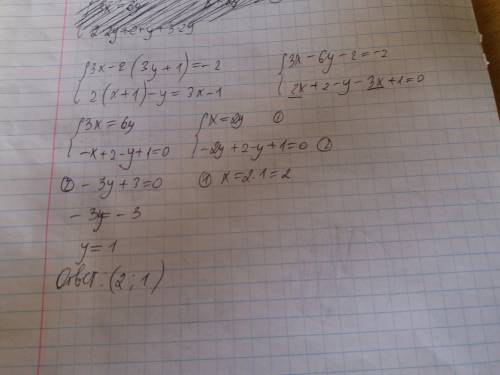 {3x-2(3y+1)=-2
{2(x+1)-y=3x-1
{3x-6y-2=-2
{2x+2-y-3x+1=0
{3x=6y
{-x+2-y+1=0
{x=2y ①
{-2y+2-y+1=0 ②
② -3y+3=0
-3y=-3
y=1
① x=2·1=2
Ответ: (2; 1)